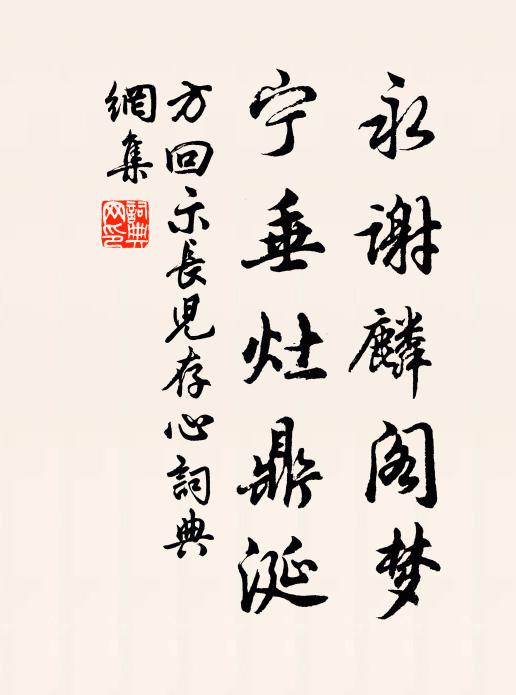 永谢麟阁梦
宁垂灶鼎涎
方回示長児存心詞典
網集
詞典網印